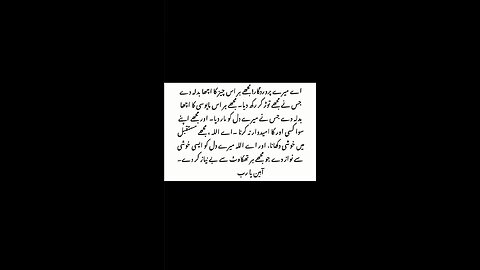 اے میرے پروردگار! مجھے ہر اس چیز کا اچھا بدلہ دے
جس نے مجھے توڑ کر رکھ دیا۔ مجھے ہر اس مایوسی کا اچھا
بدلہ دے جس نے میرے دل کو مار دیا۔ اور مجھے اپنے
سوا کسی اور کا امیدوار نہ کرنا۔ اے اللہ، مجھے مستقبل
میں خوشی دکھانا، اور اے اللہ میرے دل کو ایسی خوشی
سے نواز دے جو مجھے ہر تھکاوٹ سے بے نیاز کر دے۔
آمین یا رب